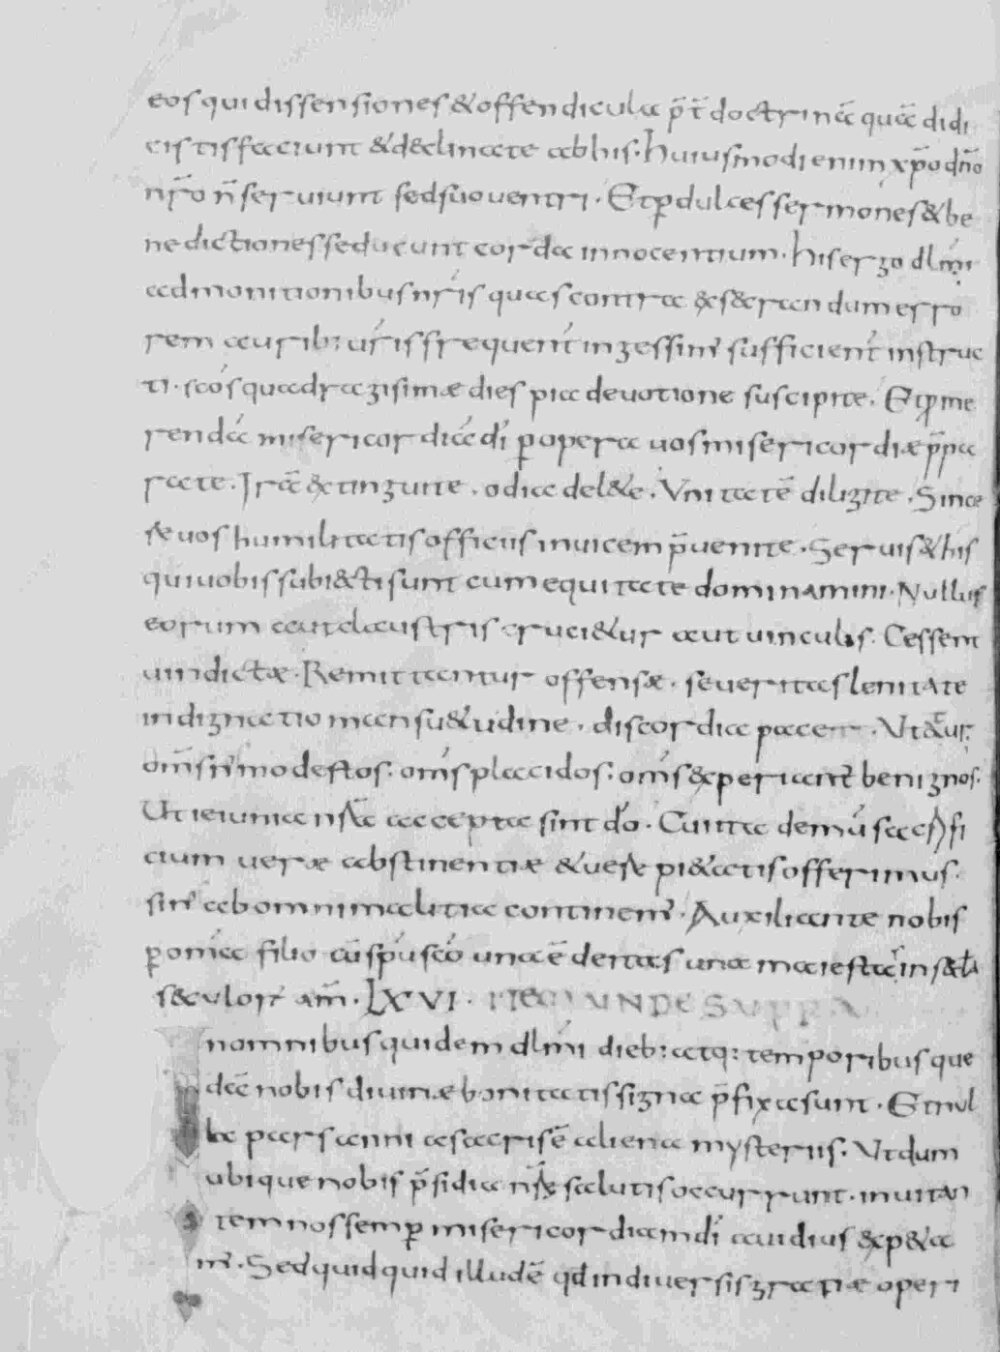 eos qui dissensiones & offendicula p̄t̄ doctrinā quā didi
cistis faciunt & declinate ab his. Huiusmodi enim xp̄o dn̄o
nr̄o n̄ seruiunt sed suo uentri. Et ꝑ dulces sermones & be
nedictiones seducunt corda innocentium. His ergo dl̄mi
admonitionibus nr̄is quas contra exsecrandum erro
rem aurib; ur̄is frequent̄ ingessim̄ sufficient̄ instruc
ti. sc̄os quadragisimæ dies pia deuotione suscipite. Et ꝓme
rendā misericordiā dī ꝑ opera uos misericordiæ p̄pa
rate. Irā extinguite. odia delete. Unitatē diligite. Since
ræ uos humilitatis officiis inuicem p̄uenite. Seruis & his
qui uobis subiecti sunt cum equitate dominamini. Nullus
eorum aut claustris crucietur aut uinculis. Cessent
uindictæ. Remittantur offensæ. seueritas lenitate
indignatio mansuetudine. discordia pacem.
om̄s n̄ modestos. om̄s placidos. om̄s experiant̄ benignos.
Ut ieiunia nr̄a accepta sint dō. Cui ita demū sacrifi
cium ueræ abstinentiæ & ueræ pietatis offerimus.
si n̄ ab omni malitia continem̄. Auxiliante nobis
ꝑ omīa filio cū sp̄u sc̄o una ē deitas una maiestas in sc̄la
sæculor̄ am̄. LXVI. ITEM UNDE SUPRA
n omnibus quidem dl̄mi dieb: atq: temporibus que
dā nobis diuinæ bonitatis signa p̄fixa sunt. Et nul
la pars anni a sacris ē aliena mysteriis. Ut dum
ubique nobis p̄sidia nr̄æ salutis occurrunt. inuitan
tem nos semꝑ misericordiam dī auidius expeta
m̄. Sed quidquid illud ē qd̄ in diuersis gratiæ operi